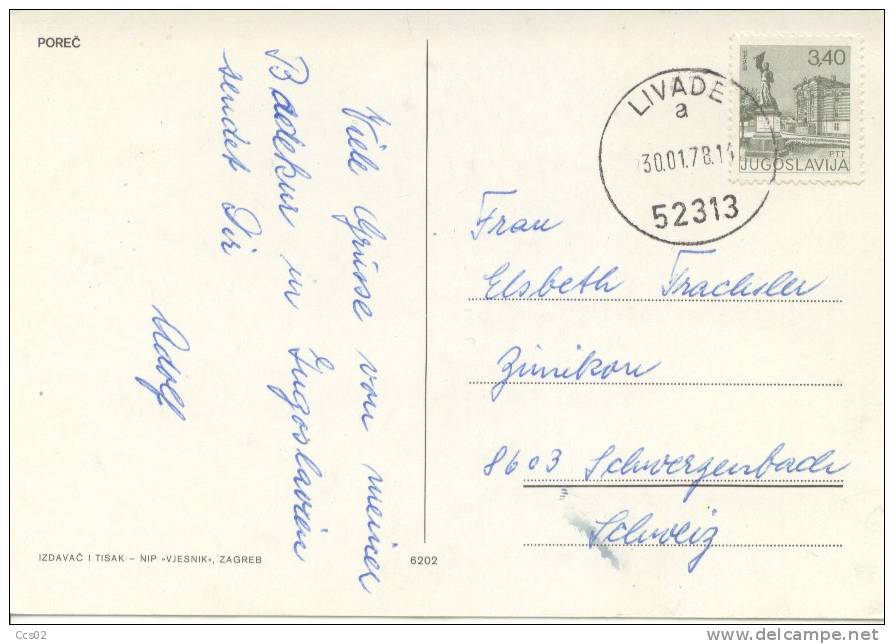 POREČ
Viele Grüsse von meiner
Badekur in Jugoslavien
sendet Dir
Adolf
IZDAVAČ I TISAK – NIP »VJESNIK«, ZAGREB
6202
LIVADE
a
30.01.78.14
52313
3,40
PTT
JUGOSLAVIJA
Frau
Elsbeth Trachsler
Zimikon
8603 Schwerzenbach
Schweiz
Ccs02
delcampe.net